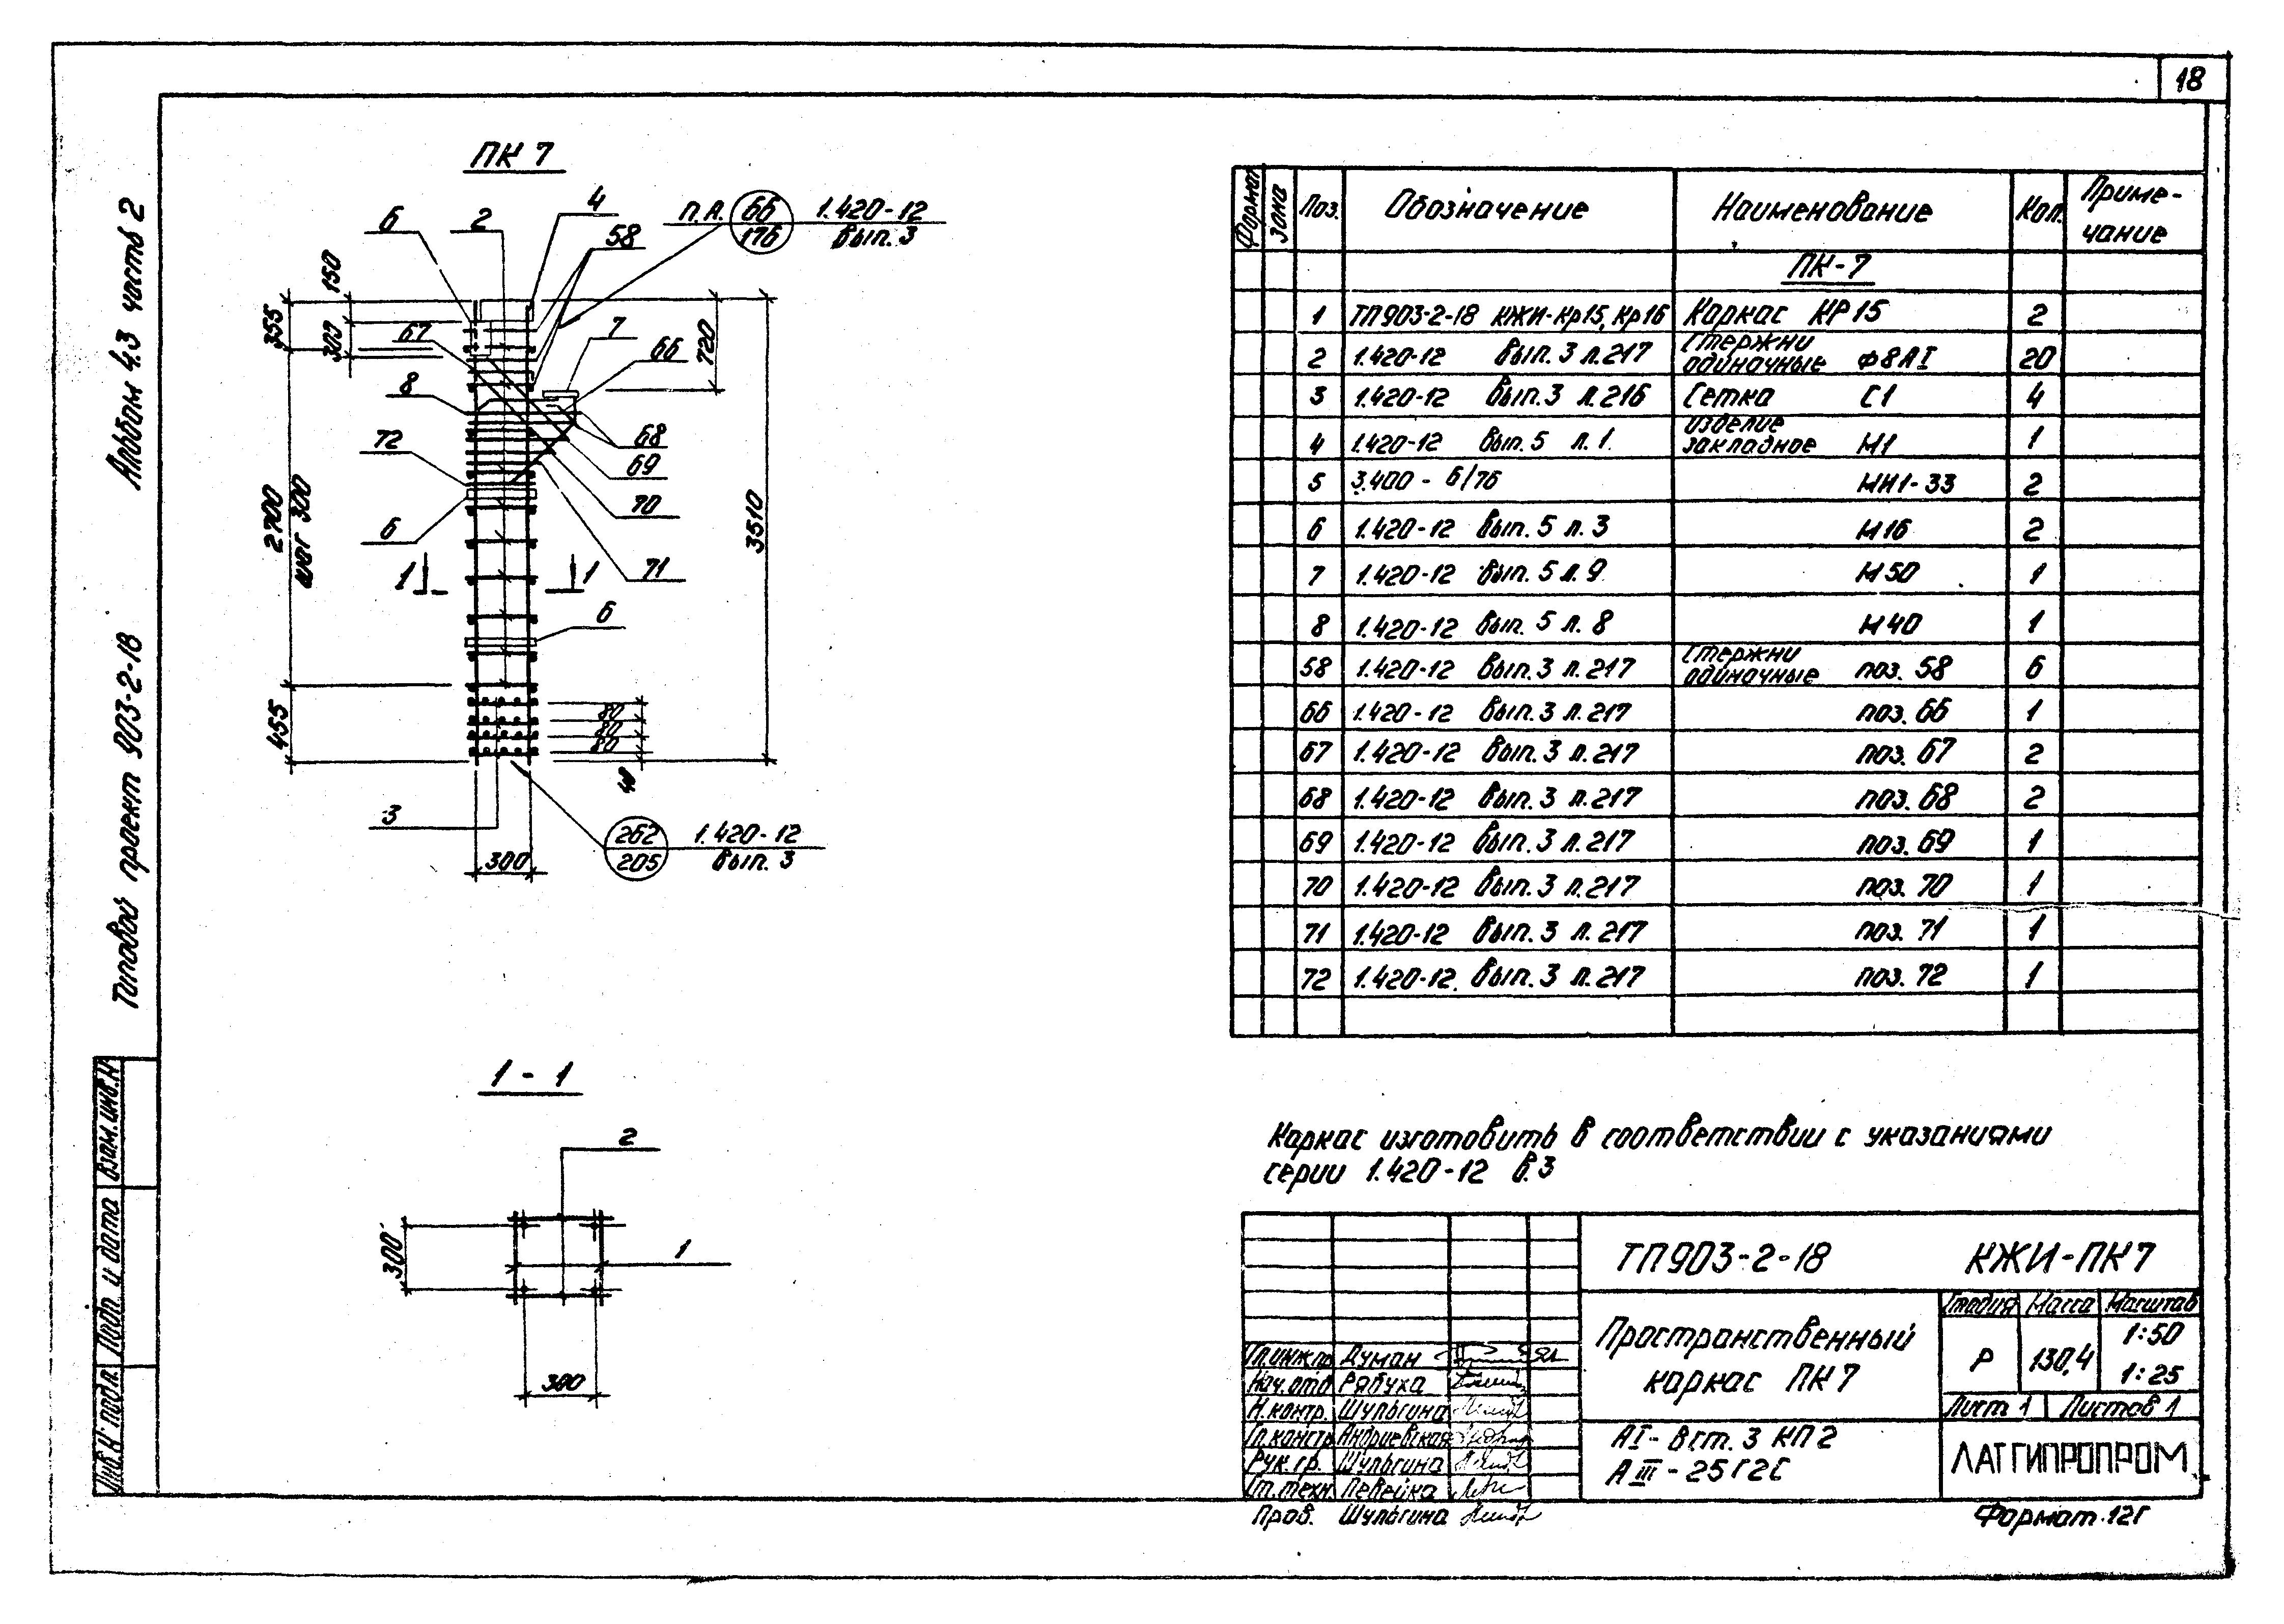 18
Альбом 4.3 часть 2
Типовой проект 903-2-18
Взам.инв.№
Подп. и дата
Инв.№ подл.
ПК 7
6
2
4
58
п.А. 66 1.420-12
176 Вып. 3
150
355
300
67
7
66
720
8
72
68
69
70
6
71
2700
шаг 300
3510
1 1
6
455
80
80
80
3
300
262 1.420-12
205 Вып. 3
1 - 1
2
1
300
300
Формат Зона Поз. Обозначение Наименование Кол. Приме-
чание
ПК-7
1 ТП903-2-18 КЖИ-Кр15, Кр16 Каркас КР15 2
2 1.420-12 Вып. 3 л.217 Стержни одиночные ф8АI 20
3 1.420-12 Вып. 3 л.216 Сетка С1 4
4 1.420-12 Вып. 5 л. 1. Изделие закладное М1 1
5 3.400 - 6/76 МН1-33 2
6 1.420-12 Вып. 5 л. 3 М16 2
7 1.420-12 Вып. 5 л. 9 М50 1
8 1.420-12 Вып. 5 л. 8 М40 1
58 1.420-12 Вып. 3 л.217 Стержни одиночные поз. 58 6
66 1.420-12 Вып. 3 л.217 поз. 66 1
67 1.420-12 Вып. 3 л.217 поз. 67 2
68 1.420-12 Вып. 3 л.217 поз. 68 2
69 1.420-12 Вып. 3 л.217 поз. 69 1
70 1.420-12 Вып. 3 л.217 поз. 70 1
71 1.420-12 Вып. 3 л.217 поз. 71 1
72 1.420-12 Вып. 3 л.217 поз. 72 1
Каркас изготовить в соответствии с указаниями
серии 1.420-12 в.3
ТП903-2-18 КЖИ-ПК7
Пространственный
каркас ПК7
Стадия Масса Масштаб
Р 130,4 1:50
1:25
Лист 1 Листов 1
АI- Вст. 3 КП2
АIII - 25Г2С
ЛАТГИПРОПРОМ
Гл.инж.пр Думан
Нач.отд Рябуха
Н.контр. Шульгина
Гл.констр Андриевская
Рук.гр. Шульгина
Ст.техн. Певейка
Пров. Шульгина
Формат 12Г